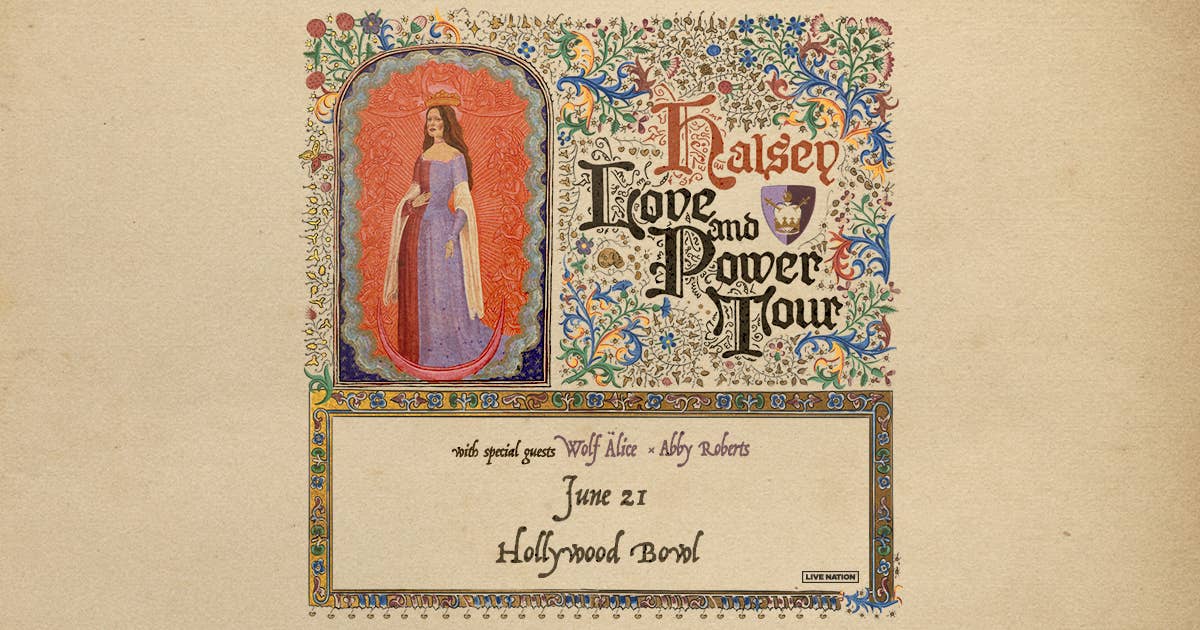 Halsey
Love
and
Power
Tour
with special guests Wolf Älice × Abby Roberts
June 21
Hollywood Bowl
LIVE NATION